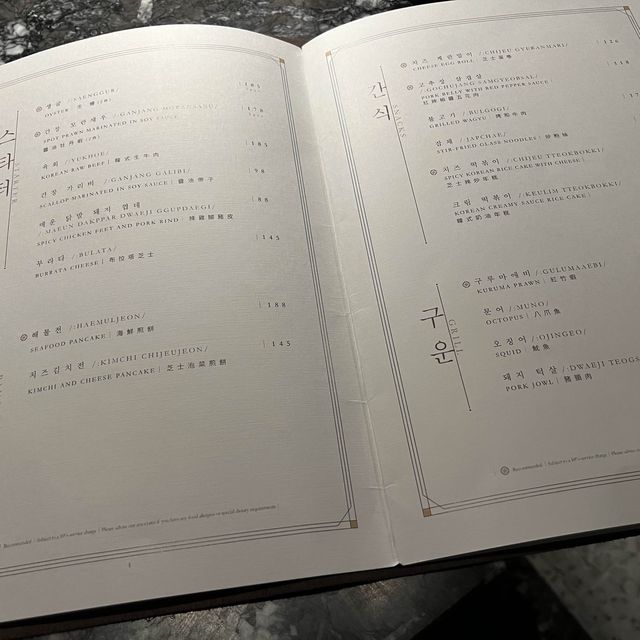 스타터
STARTER
생굴 /SAENGGUL/
간장 모란새우
PRAWN MARINATED IN SOY SAUCE
178
육회 /YUKHOE/
KOREAN RAW BEEF | 韓式生牛肉
185
간장 가리비 /GANJANG GALIBI/
SCALLOP MARINATED IN SOY SAUCE | 醬油帶子
96
매운 닭발 돼지 껍데
/MAEUN DAKPAR DWAEJI GGUPDAEGI/
SPICY CHICKEN FEET AND PORK RIND | 辣雞腳豬皮
88
부라타 /BULATA/
BURRATA CHEESE | 布拉塔芝士
145
해물전 /:HAEMULJEON/
SEAFOOD PANCAKE | 海鮮煎餅
188
치즈김치전 /:KIMCHI CHIJEUJEON/
KIMCHI AND CHEESE PANCAKE | 芝士泡菜煎餅
145
Recommended | Subject to a 10% service charge | Please advise our associates if you have any food allergies or special dietary requirements
1
간식
SNACKS
치즈 계란말이 /:CHIJEU GYERANMARI/
CHEESE EGG ROLL | 芝士蛋卷
128
고추장 삼겹살
/GOCHUJANG SAMGYEOBSAL/
PORK BELLY WITH RED PEPPER SAUCE
紅辣椒醬五花肉
118
불고기 /BULGOGI/
GRILLED WAGYU | 烤和牛肉
잡채 /JAPCHAE/
STIR-FRIED GLASS NOODLES | 炒粉絲
치즈 떡볶이 /:CHIJEU TTEOKBOKKI/
SPICY KOREAN RICE CAKE WITH CHEESE
芝士辣炒年糕
크림 떡볶이 /:KEULIM TTEOKBOKKI/
KOREAN CREAMY SAUCE RICE CAKE
韓式奶油年糕
구운
GRILL
구루마에비 /:GULUMAAEBI/
KURUMA PRAWN | 虹竹蝦
문어 /:MUNO/
OCTOPUS | 八爪魚
오징어 /:OJINGEO/
SQUID | 魷魚
돼지 턱살 /:DWAEJI TEOGS
PORK JOWL | 豬頸肉
Recommended | Subject to a 10% service charge | Please advise